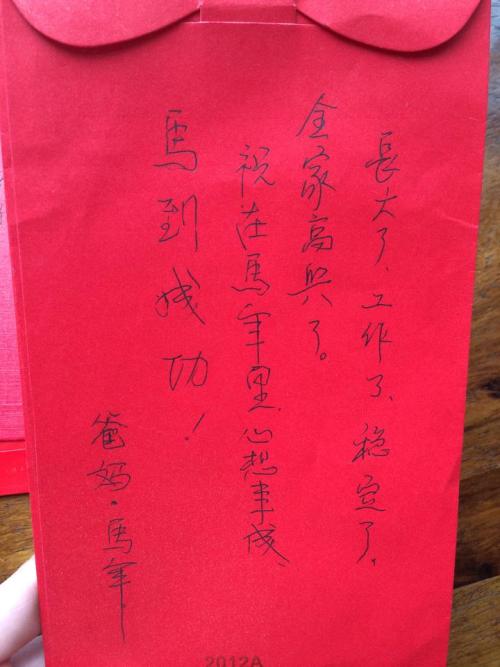 長大了、工作了、稳定了，
全家高兴了。
祝在馬年里、心想事成、
馬到成功！
爸妈·馬年
2012A